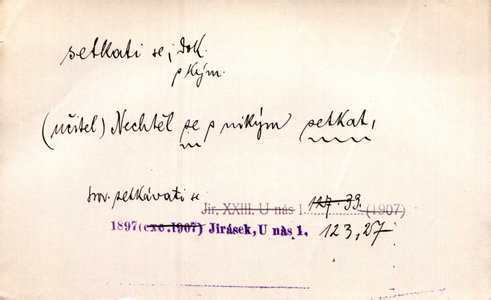 setkati se, dok.
s kým.
(učitel) Nechtěl se s nikým setkat,
srov. setkávati se
Jir. XXIII. U nás I. 127. 39. (1907)
1897 (exc. 1907) Jirásek, U nás 1. 123, 27